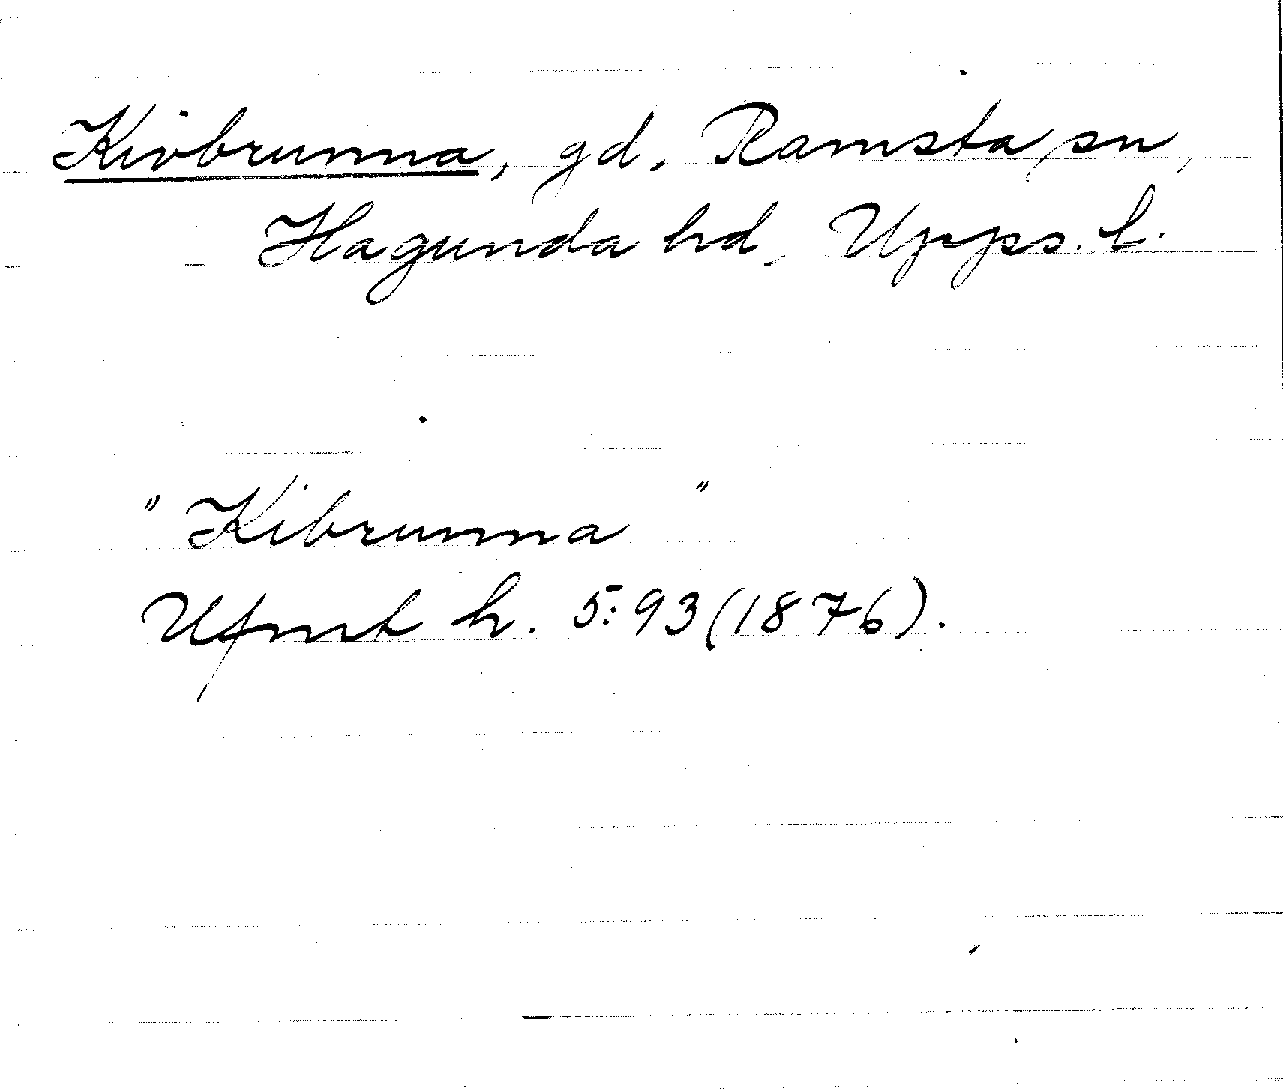 Kivbrunna, gd, Ramsta sn,
Hagunda hd, Upps. l.
"Kibrunna"
Ufmt h. 5:93 (1876).